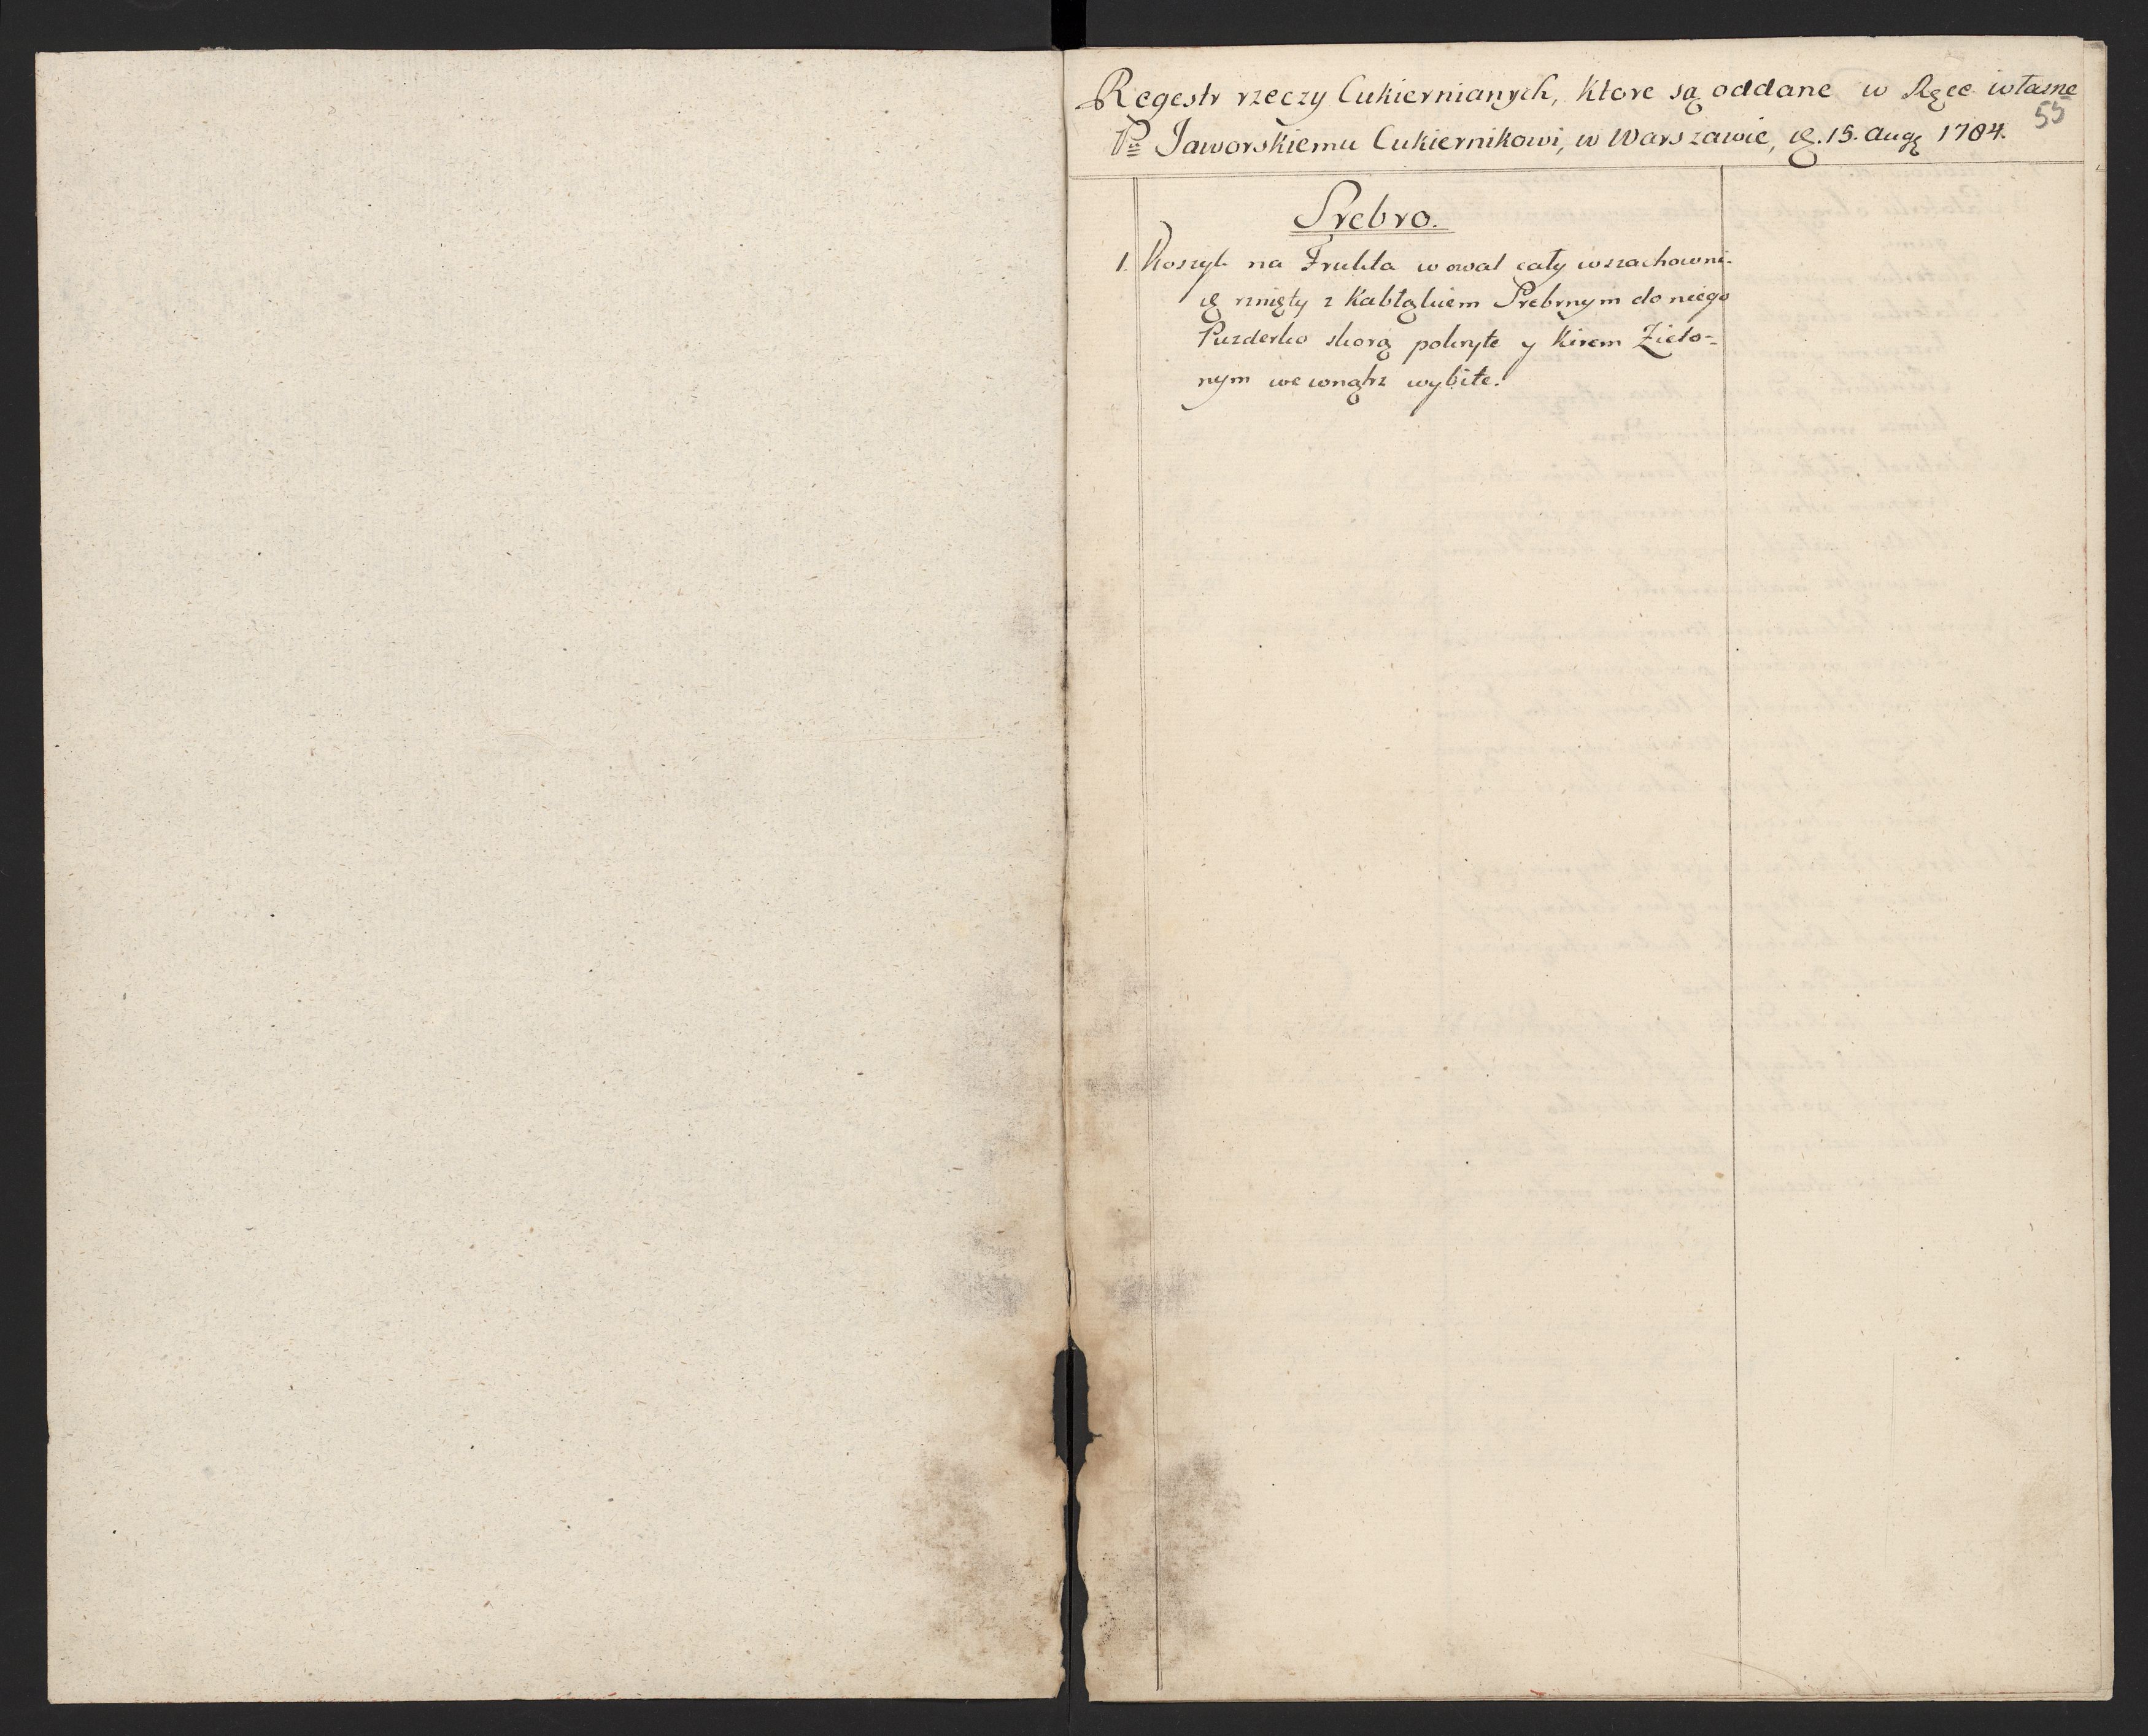 Regestr rzeczy Cukiernianych, Ktore są oddane w Ręce własne
55
Pu Jaworskiemu Cukiernikowi, w Warszawie, 15. Aug 1784.
Srebro.
1. Koszyk na Frukta w owal cały w szachowni-
cę rznięty z Kabłąkiem Srebrnym do niego
Puzderko skorą pokryte y Kirem Zielo-
nym we wnątrz wybite.